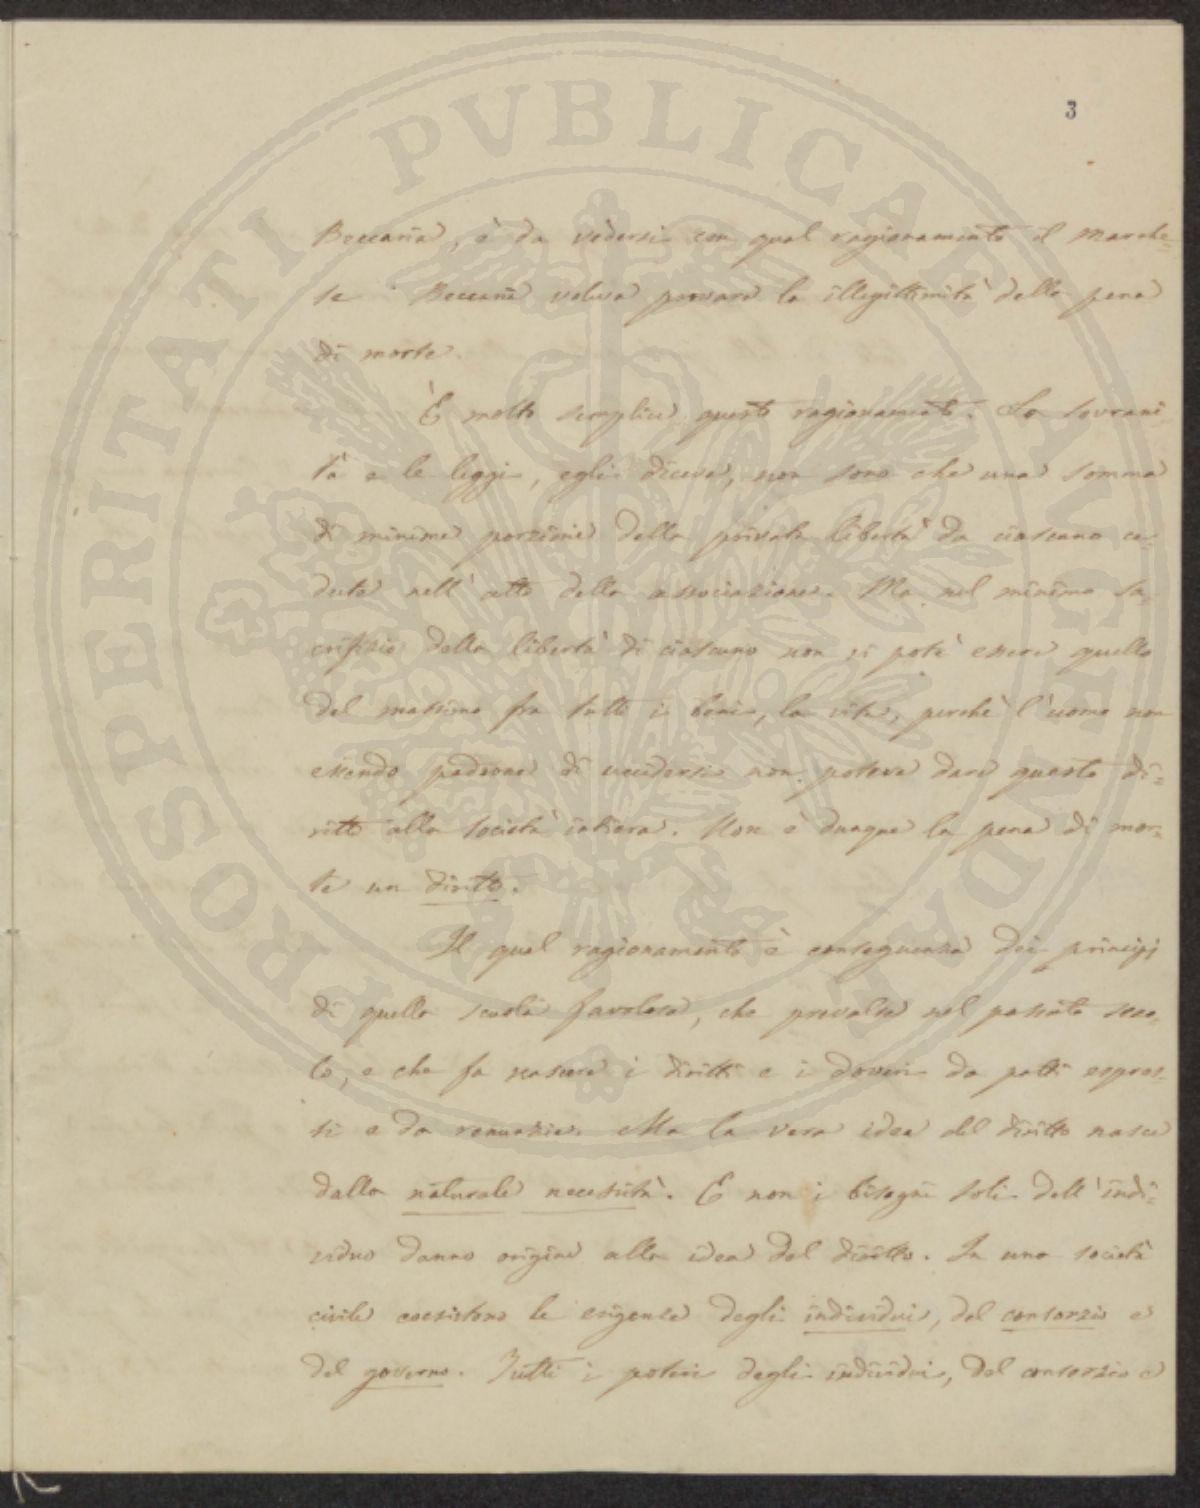 PROSPERITATI PVBLICAE AVGENDAE
3
Beccaria, è da vedersi con qual ragionamento il Marche=
se Beccaria voleva provare la illegittimità della pena
di morte.
È molto semplice questo ragionamento. La sovrani
tà e le leggi, egli diceva, non sono che una somma
di minime porzioni della privata libertà da ciascuno ce-
duta nell'atto della associazione. Ma nel minimo sa-
crifizio della libertà di ciascuno non vi potè essere quello
del massimo fra tutti i beni, la vita, perchè l'uomo non
essendo padrone di uccidersi non poteva dare questo di=
ritto alla società intiera. Non è dunque la pena di mor=
te un diritto.
Il qual ragionamento è conseguenza dei principj
di quella scuola favolosa, che prevalse nel passato seco-
lo, e che fa nascere i diritti e i doveri da patti espres-
si e da renunzie. Ma la vera idea del diritto nasce
dalla naturale necessità. E non i bisogni soli dell'indi=
viduo danno origine alla idea del diritto. In una società
civile coesistono le esigenze degli individui, del consorzio e
del governo. Tutti i poteri degli individui, del consorzio e